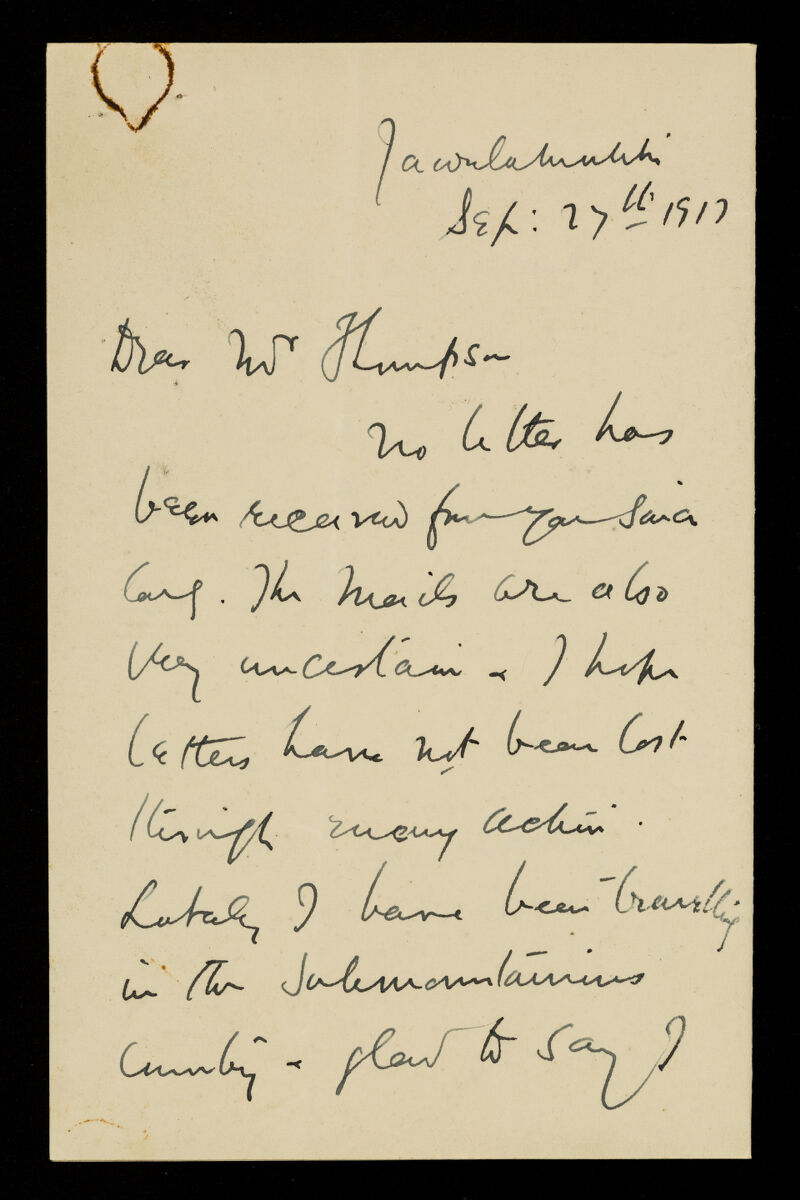 Jawalamukhi
Sep: 27th 1917
Dear Mr Thompson
No letter has
been received from you since
long. The Mails are also
very uncertain & I hope
letters have not been lost
through enemy action.
Lately I have been travelling
in the Submountainous
Country & glad to say I